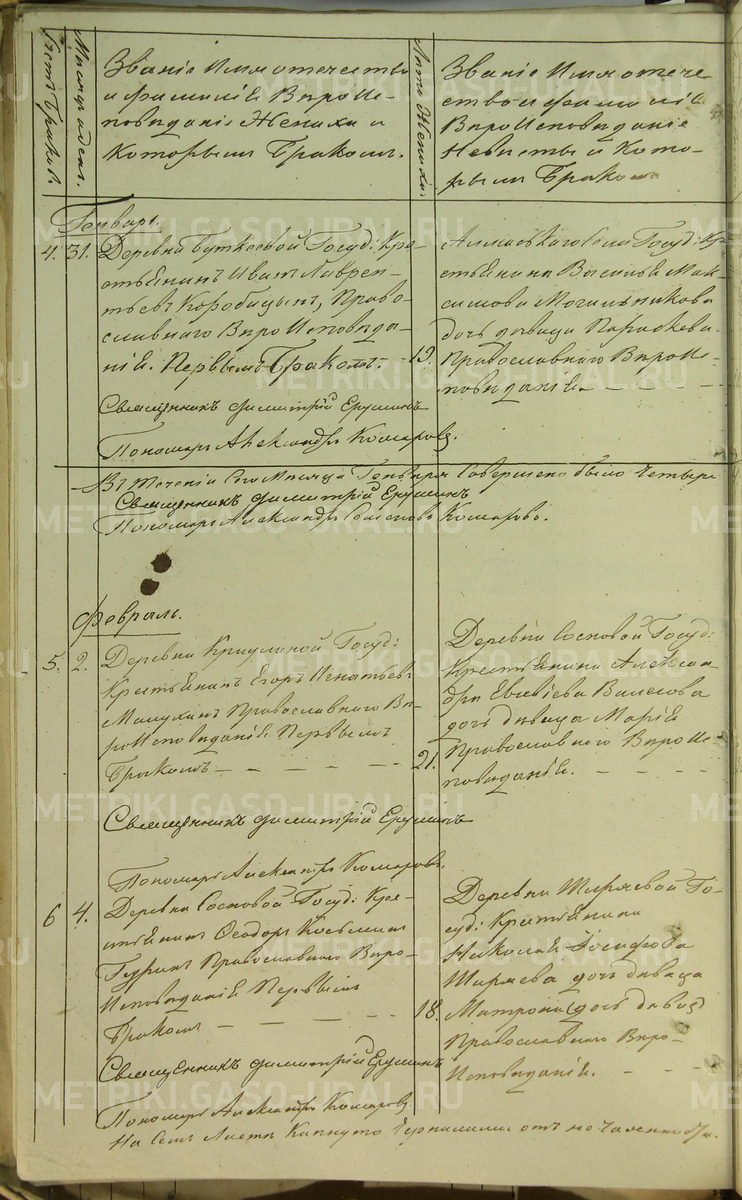 Счетъ Браковъ.
Мѣсяцъ и день.
Званіе Имя отечество
и фамилія Вѣроис-
повѣданіе Жениха и
которымъ Бракомъ.
Лѣта Жениха.
Званіе Имя отече
ство и фамилія
Вѣроисповѣданіе
Невѣсты и Кото-
рымъ Бракомъ
Генварь.
4. 31. Деревни Бутковой Госуд: Кре-
стьянинъ Иванъ Лаврен-
тьевъ Коробицынъ, Право-
славнаго Вѣроисповѣда-
нія. Первымъ Бракомъ. -
Священникъ Димитрій Ерушинъ
Пономарь Александръ Комаровъ.
села Госуд: Кре
стьянина Василья Мак-
симова Могильникова
дочь дѣвица Параскева.
19. Православнаго Вѣроис-
повѣданія. - - - -
Въ теченіи сего мѣсяца Генваря совершено было четыре
Священникъ Димитрій Ерушинъ
Пономарь Александръ Комаровъ.
Февраль.
5. 2. Деревни Госуд:
Крестьянинъ Егоръ Игнатьевъ
Православнаго Вѣ-
роисповѣданія Первымъ
Бракомъ - - - - -
Священникъ Димитрій Ерушинъ
Пономарь Александръ Комаровъ.
Деревни Сосновой Госуд:
Крестьянина Алексан
дра
дочь дѣвица Марія
21. Православнаго Вѣроис-
повѣданія. - - -
6 4. Деревни Сосновой Госуд: Кре-
стьянинъ Ѳеодоръ Косьминъ
Православнаго Вѣро-
исповѣданія Первымъ
Бракомъ - - - - -
Священникъ Димитрій Ерушинъ
Пономарь Александръ Комаровъ
Деревни Ширяевой Го-
суд: Крестьянина
Николая Іосифова
Ширяева дочь дѣвица
18. Матрона (дочь дѣвиц)
Православнаго Вѣро-
исповѣданія. - - -
На семъ листѣ капнуто чернилами отъ нечаянности.
METRIKI.GASO-URAL.RU